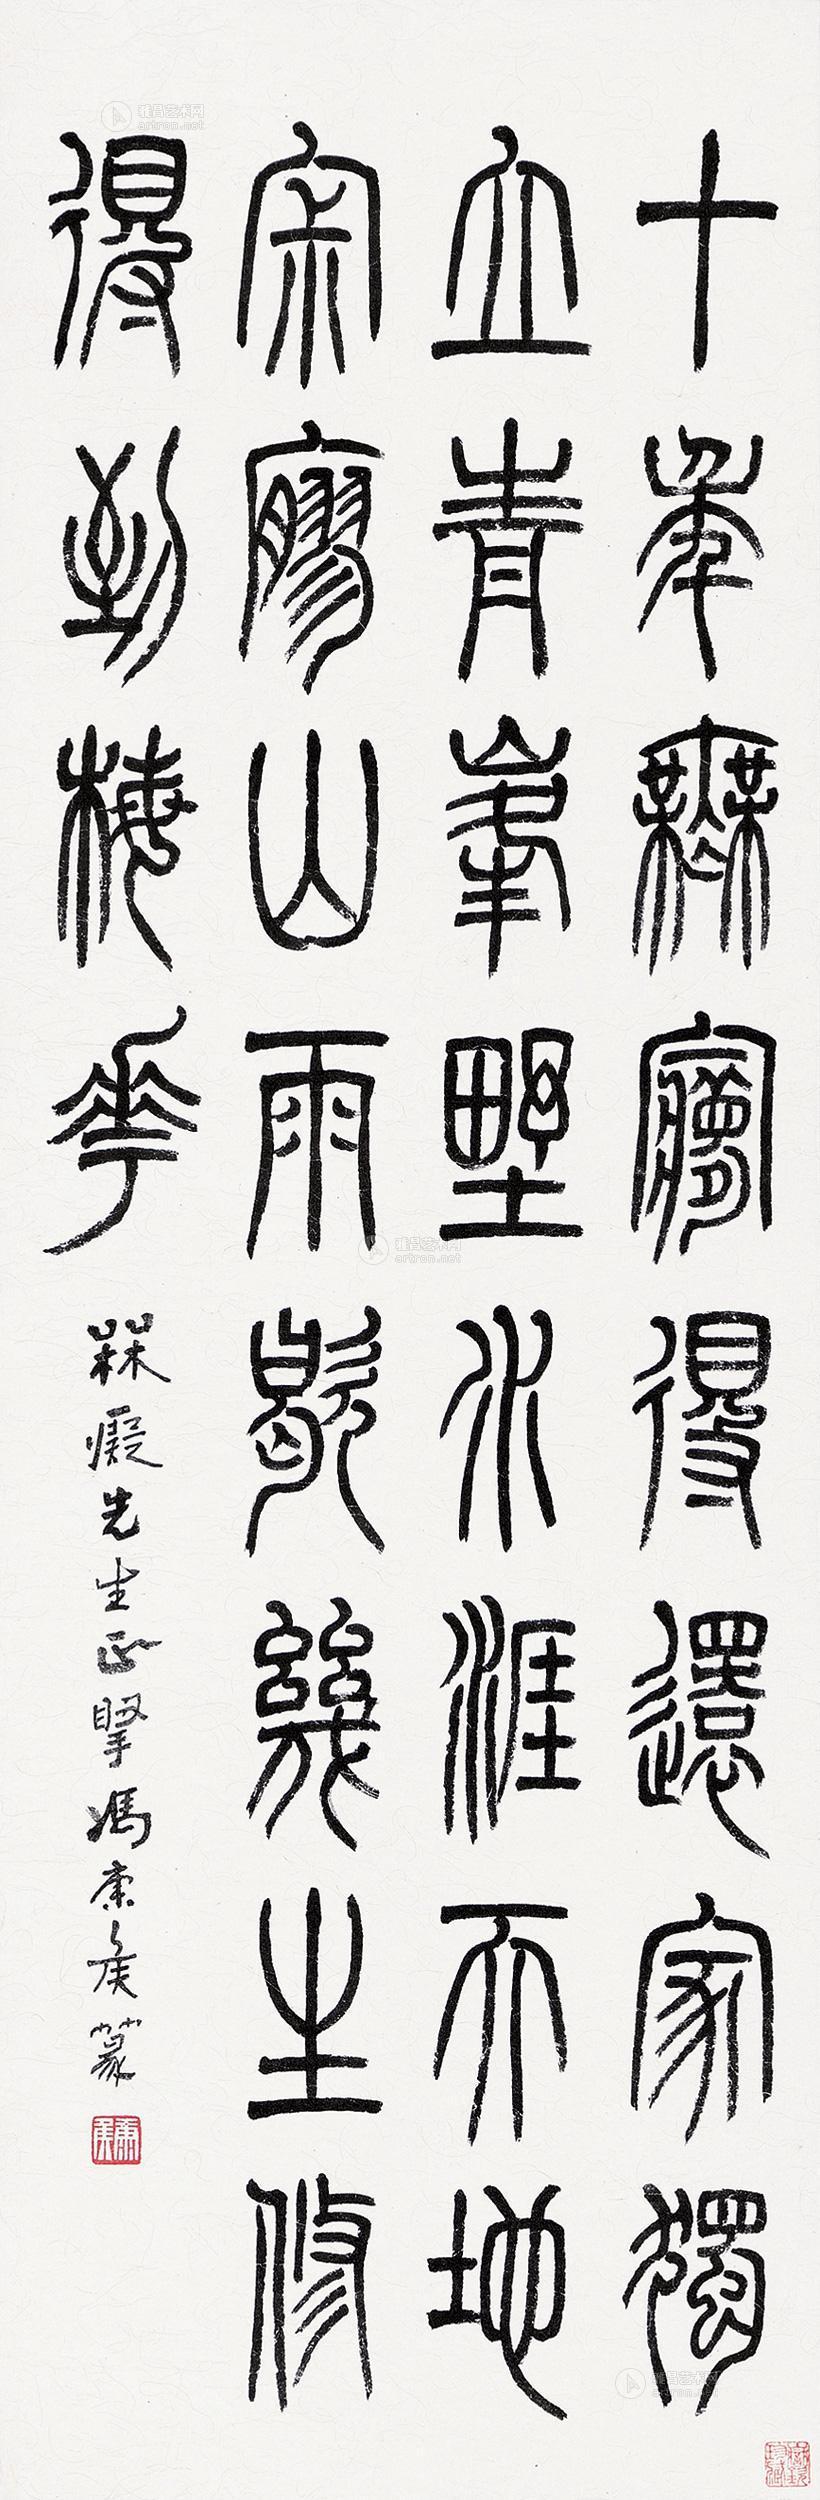 十年無夢得還家獨
立青峯野水涯天地
宗廖山雨歇幾生修
得到梅花
槑癡先生正擥馮康矦篆
雅昌艺术网
artron.net
雅昌艺术网
artron.net
雅昌艺术网
artron.net